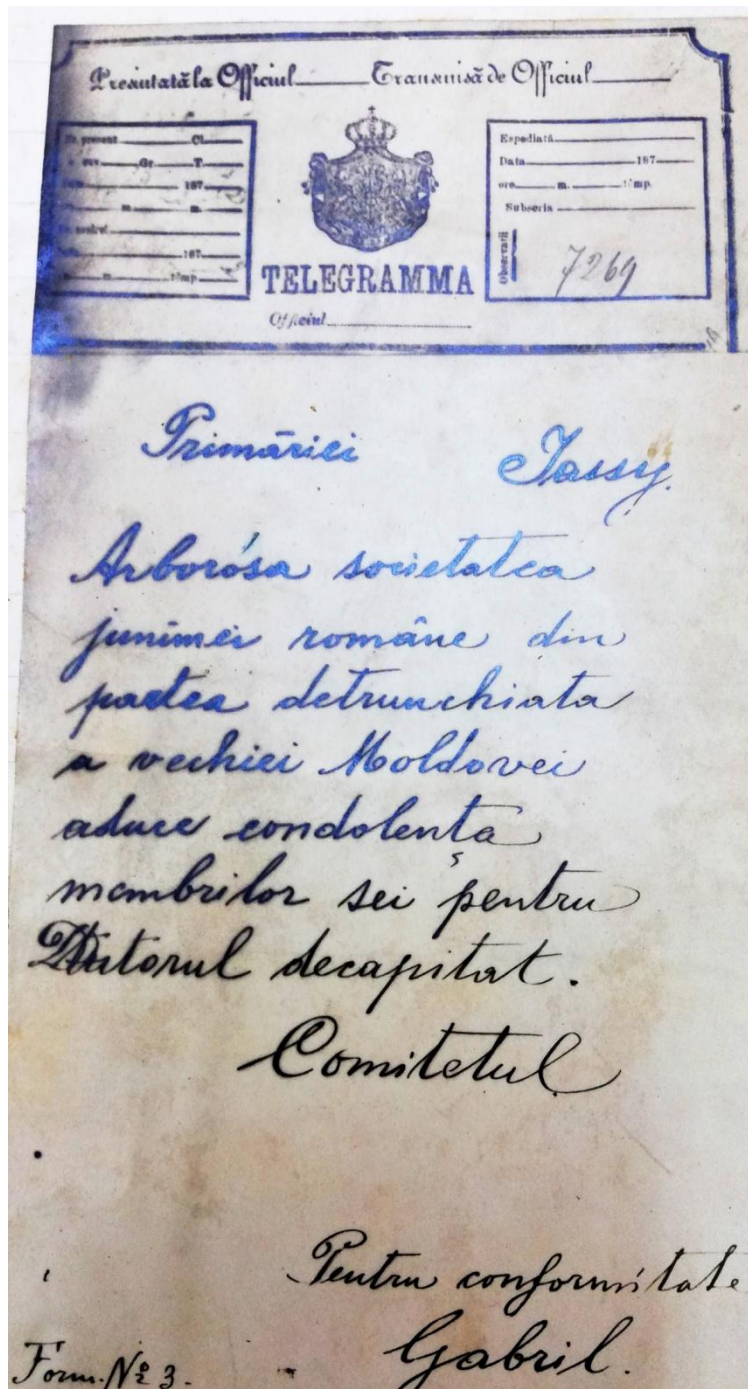 Presintată la Officiul Transmisă de Officiul
present Cl.
Gr. T.
187
m. m.
187
m. timp
TELEGRAMMA
Officiul
Espediată
Data 187
ore m. timp.
Subscris
Observatii
7269
Primăriei Jassy.
Arborósa societatea
junimei române din
partea detrunchiata
a vechiei Moldovei
aduce condolența
membrilor sei pentru
decapitat.
Comitetul
Pentru conformitate
Gabril.
Form. No 3.